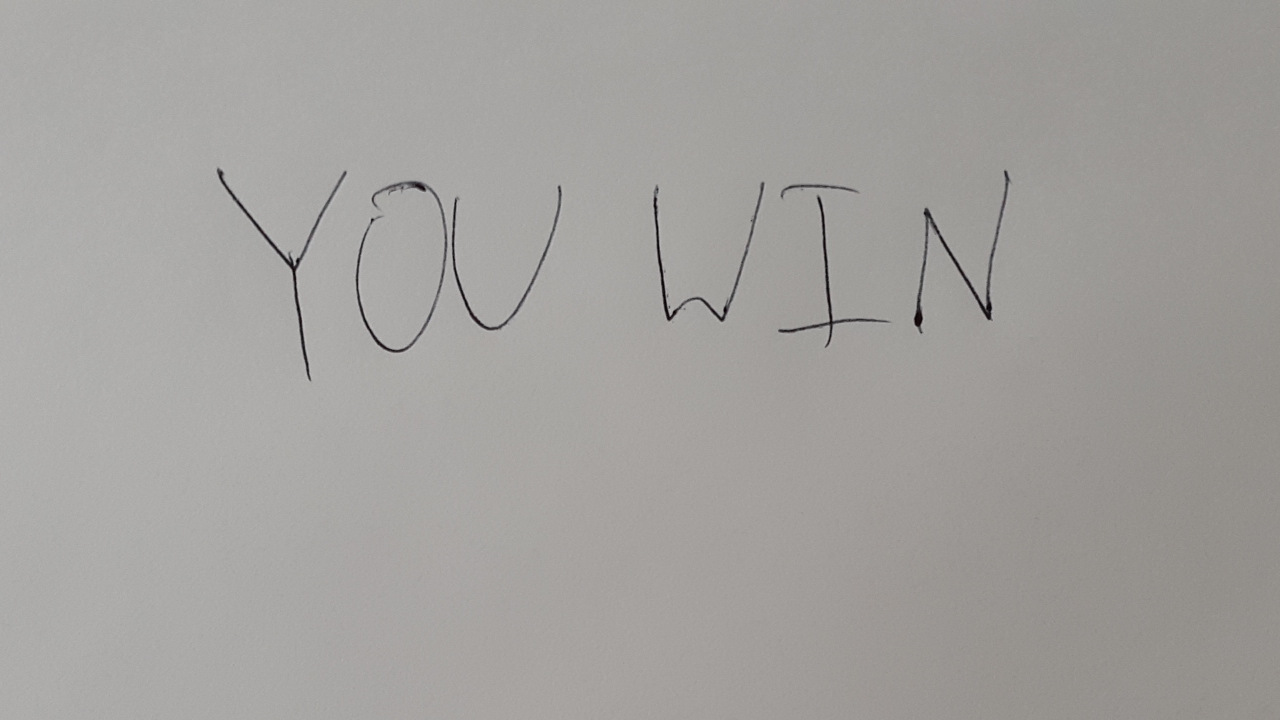 YOU WIN